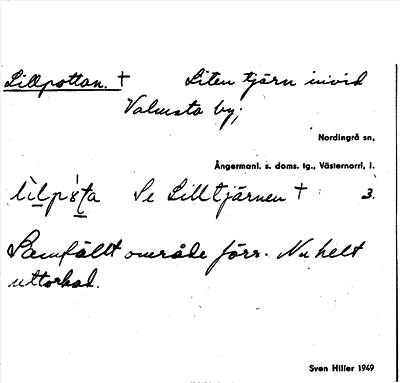 Lillpottan. † Liten tjärn invid
Valmsta by;
Nordingrå sn,
Ångermanl. s. doms. tg., Västernorrl, l.
Se Lilltjärnen † 3.
Samfällt område förr. Nu helt
uttorkad.
Sven Hiller 1949